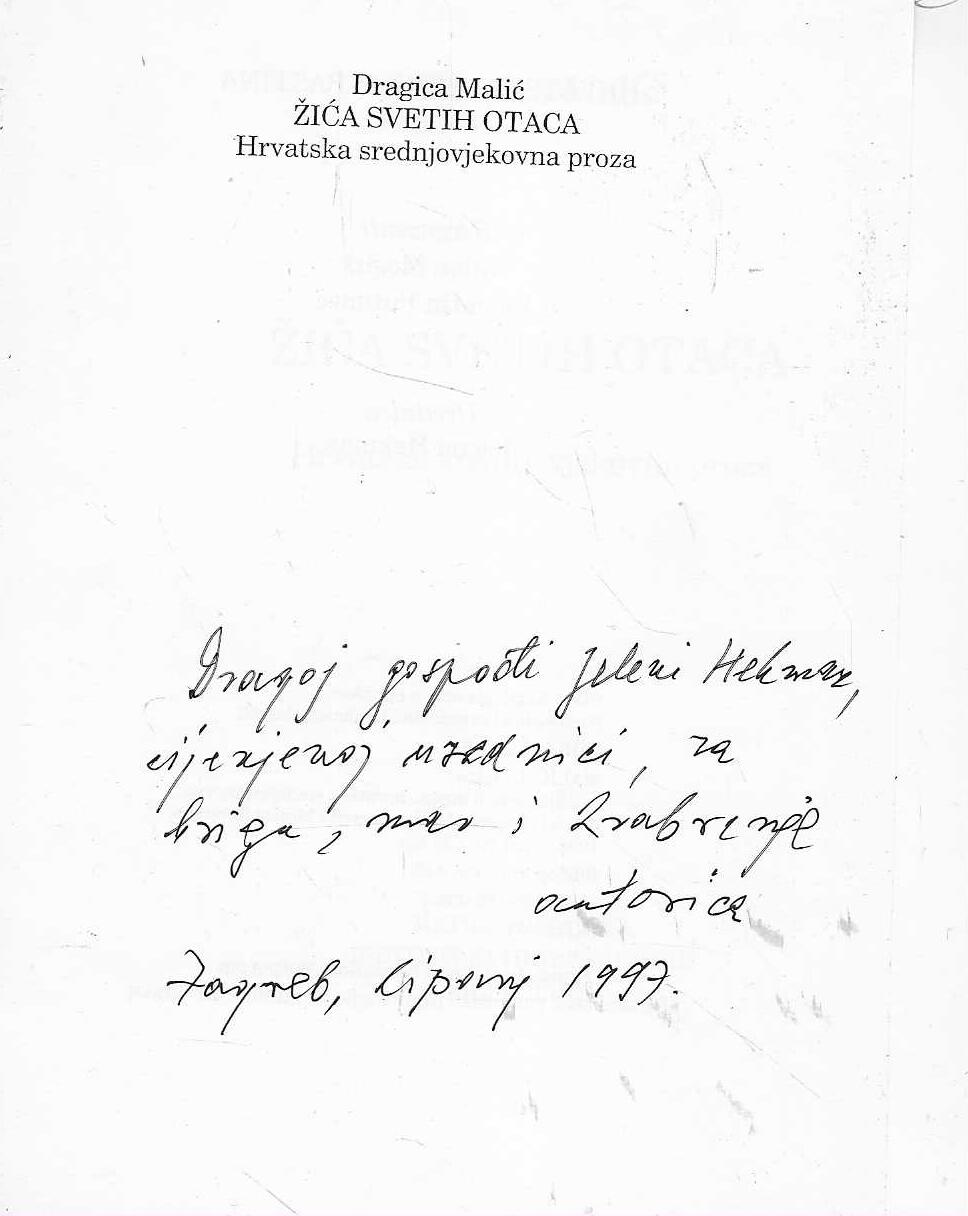 Dragica Malić
ŽIĆA SVETIH OTACA
Hrvatska srednjovjekovna proza
Dragoj gospođi Jeleni Hekman,
cijenjenoj urednici, za
brigu, mar i hrabrenje
autorica
Zagreb, lipanj 1997.